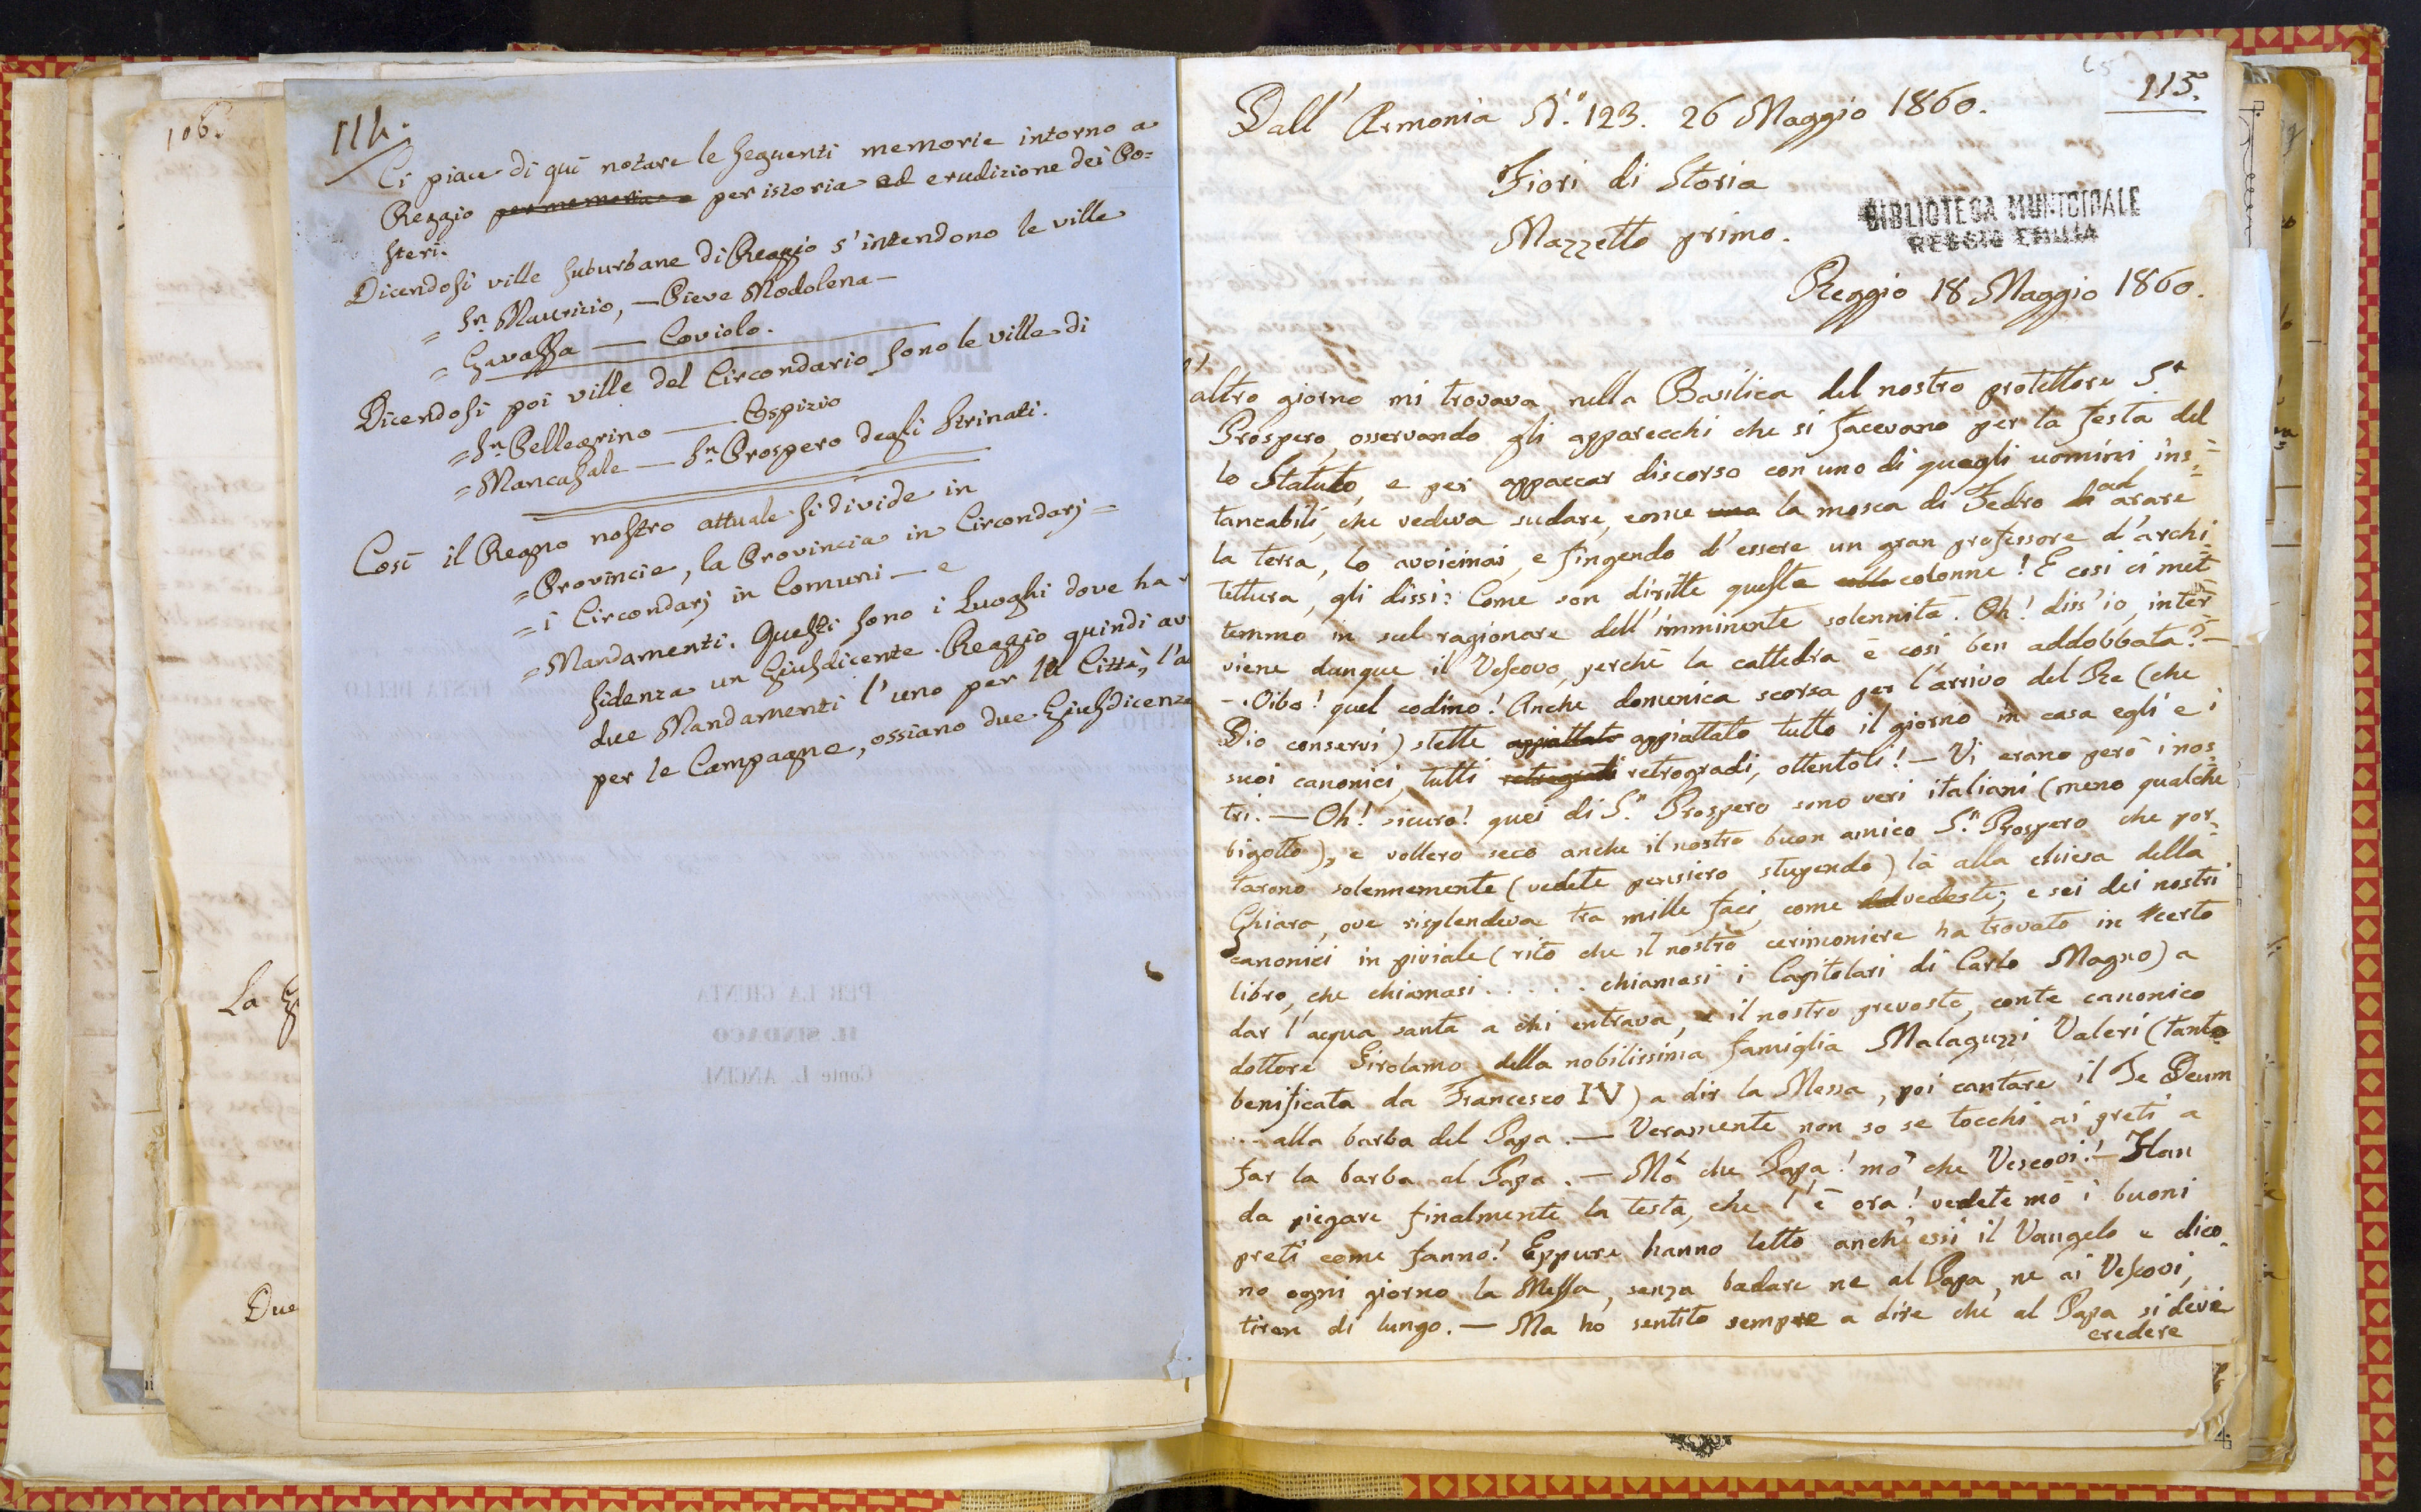 106.
La
Due
114.
Ci piace di quì notare le seguenti memorie intorno a
Reggio per memoria e per istoria ed erudizione dei Po=
steri.
Dicendosi ville suburbane di Reggio s'intendono le ville
= Sn. Maurizio, — Pieve Modolena —
= Gavassa — Coviolo.
Dicendosi poi ville del Circondario sono le ville di
= Sn. Pellegrino — Ospizio
= Mancasale — Sn. Prospero degli Strinati.
Così il Regno nostro attuale si divide in
= Provincie, la Provincia in Circondarj =
= i Circondarj in Comuni — e
= Mandamenti. Questi sono i Luoghi dove ha
sidenza un Giusdicente. Reggio quindi av
due Mandamenti l'uno per la Città, l'a
per le Campagne, ossiano due Giusdicenze
PER LA GIUNTA
IL SINDACO
Conte L. ANCINI
65
113.
Dall' Armonia N.° 123. 26 Maggio 1860.
Fiori di Storia
Mazzetto primo.
BIBLIOTECA MUNICIPALE
REGGIO EMILIA
Reggio 18 Maggio 1860.
altro giorno mi trovava nella Basilica del nostro protettore S.n
Prospero, osservando gli apparecchi che si facevano per la festa del
lo Statuto, e per appaccar discorso con uno di quegli uomini ins=
tancabili, che vedeva sudare, come una la mosca di Fedro ad arare
la terra, lo avvicinai, e fingendo d'essere un gran professore d'archi
tettura, gli dissi: Come son diritte queste colonne! E così ci met
temmo in sul ragionare dell'imminente solennità. Oh! diss'io, inter
viene dunque il Vescovo, perchè la cattedra è così ben addobbata? —
— Oibo! quel codino! Anche domenica scorsa per l'arrivo del Re (che
Dio conservi) stette appiattato appiattato tutto il giorno in casa egli e i
suoi canonici, tutti retrogradi retrogradi, ottentoti! — Vi erano però i nos=
tri. — Oh! sicuro! quei di S.n Prospero sono veri italiani (meno qualche
bigotto), e vollero seco anche il nostro buon amico S.n Prospero che por
tarono solennemente (vedete pensiero stupendo) là alla chiesa della
Ghiara, ove risplendeva tra mille faci, come vedeste; e sei dei nostri
canonici in piviale (rito che il nostro cerimoniere ha trovato in certo
libro, che chiamasi . . . . . chiamasi i Capitolari di Carlo Magno) a
dar l'acqua santa a chi entrava, e il nostro prevosto, conte canonico
dottore Girolamo della nobilissima famiglia Malaguzzi Valeri (tanto
benificata da Francesco IV) a dir la Messa, poi cantare il Te Deum
... alla barba del Papa. — Veramente non so se tocchi ai preti a
far la barba al Papa. — Mò che Papa! mò che Vescovi! — Han
da piegare finalmente la testa, che l'è ora! vedete mò i buoni
preti come fanno! Eppure hanno letto anch'essi il Vangelo e dico
no ogni giorno la Messa, senza badare ne al Papa, ne ai Vescovi,
tiran di lungo. — Ma ho sentito sempre a dire che al Papa si deve
credere